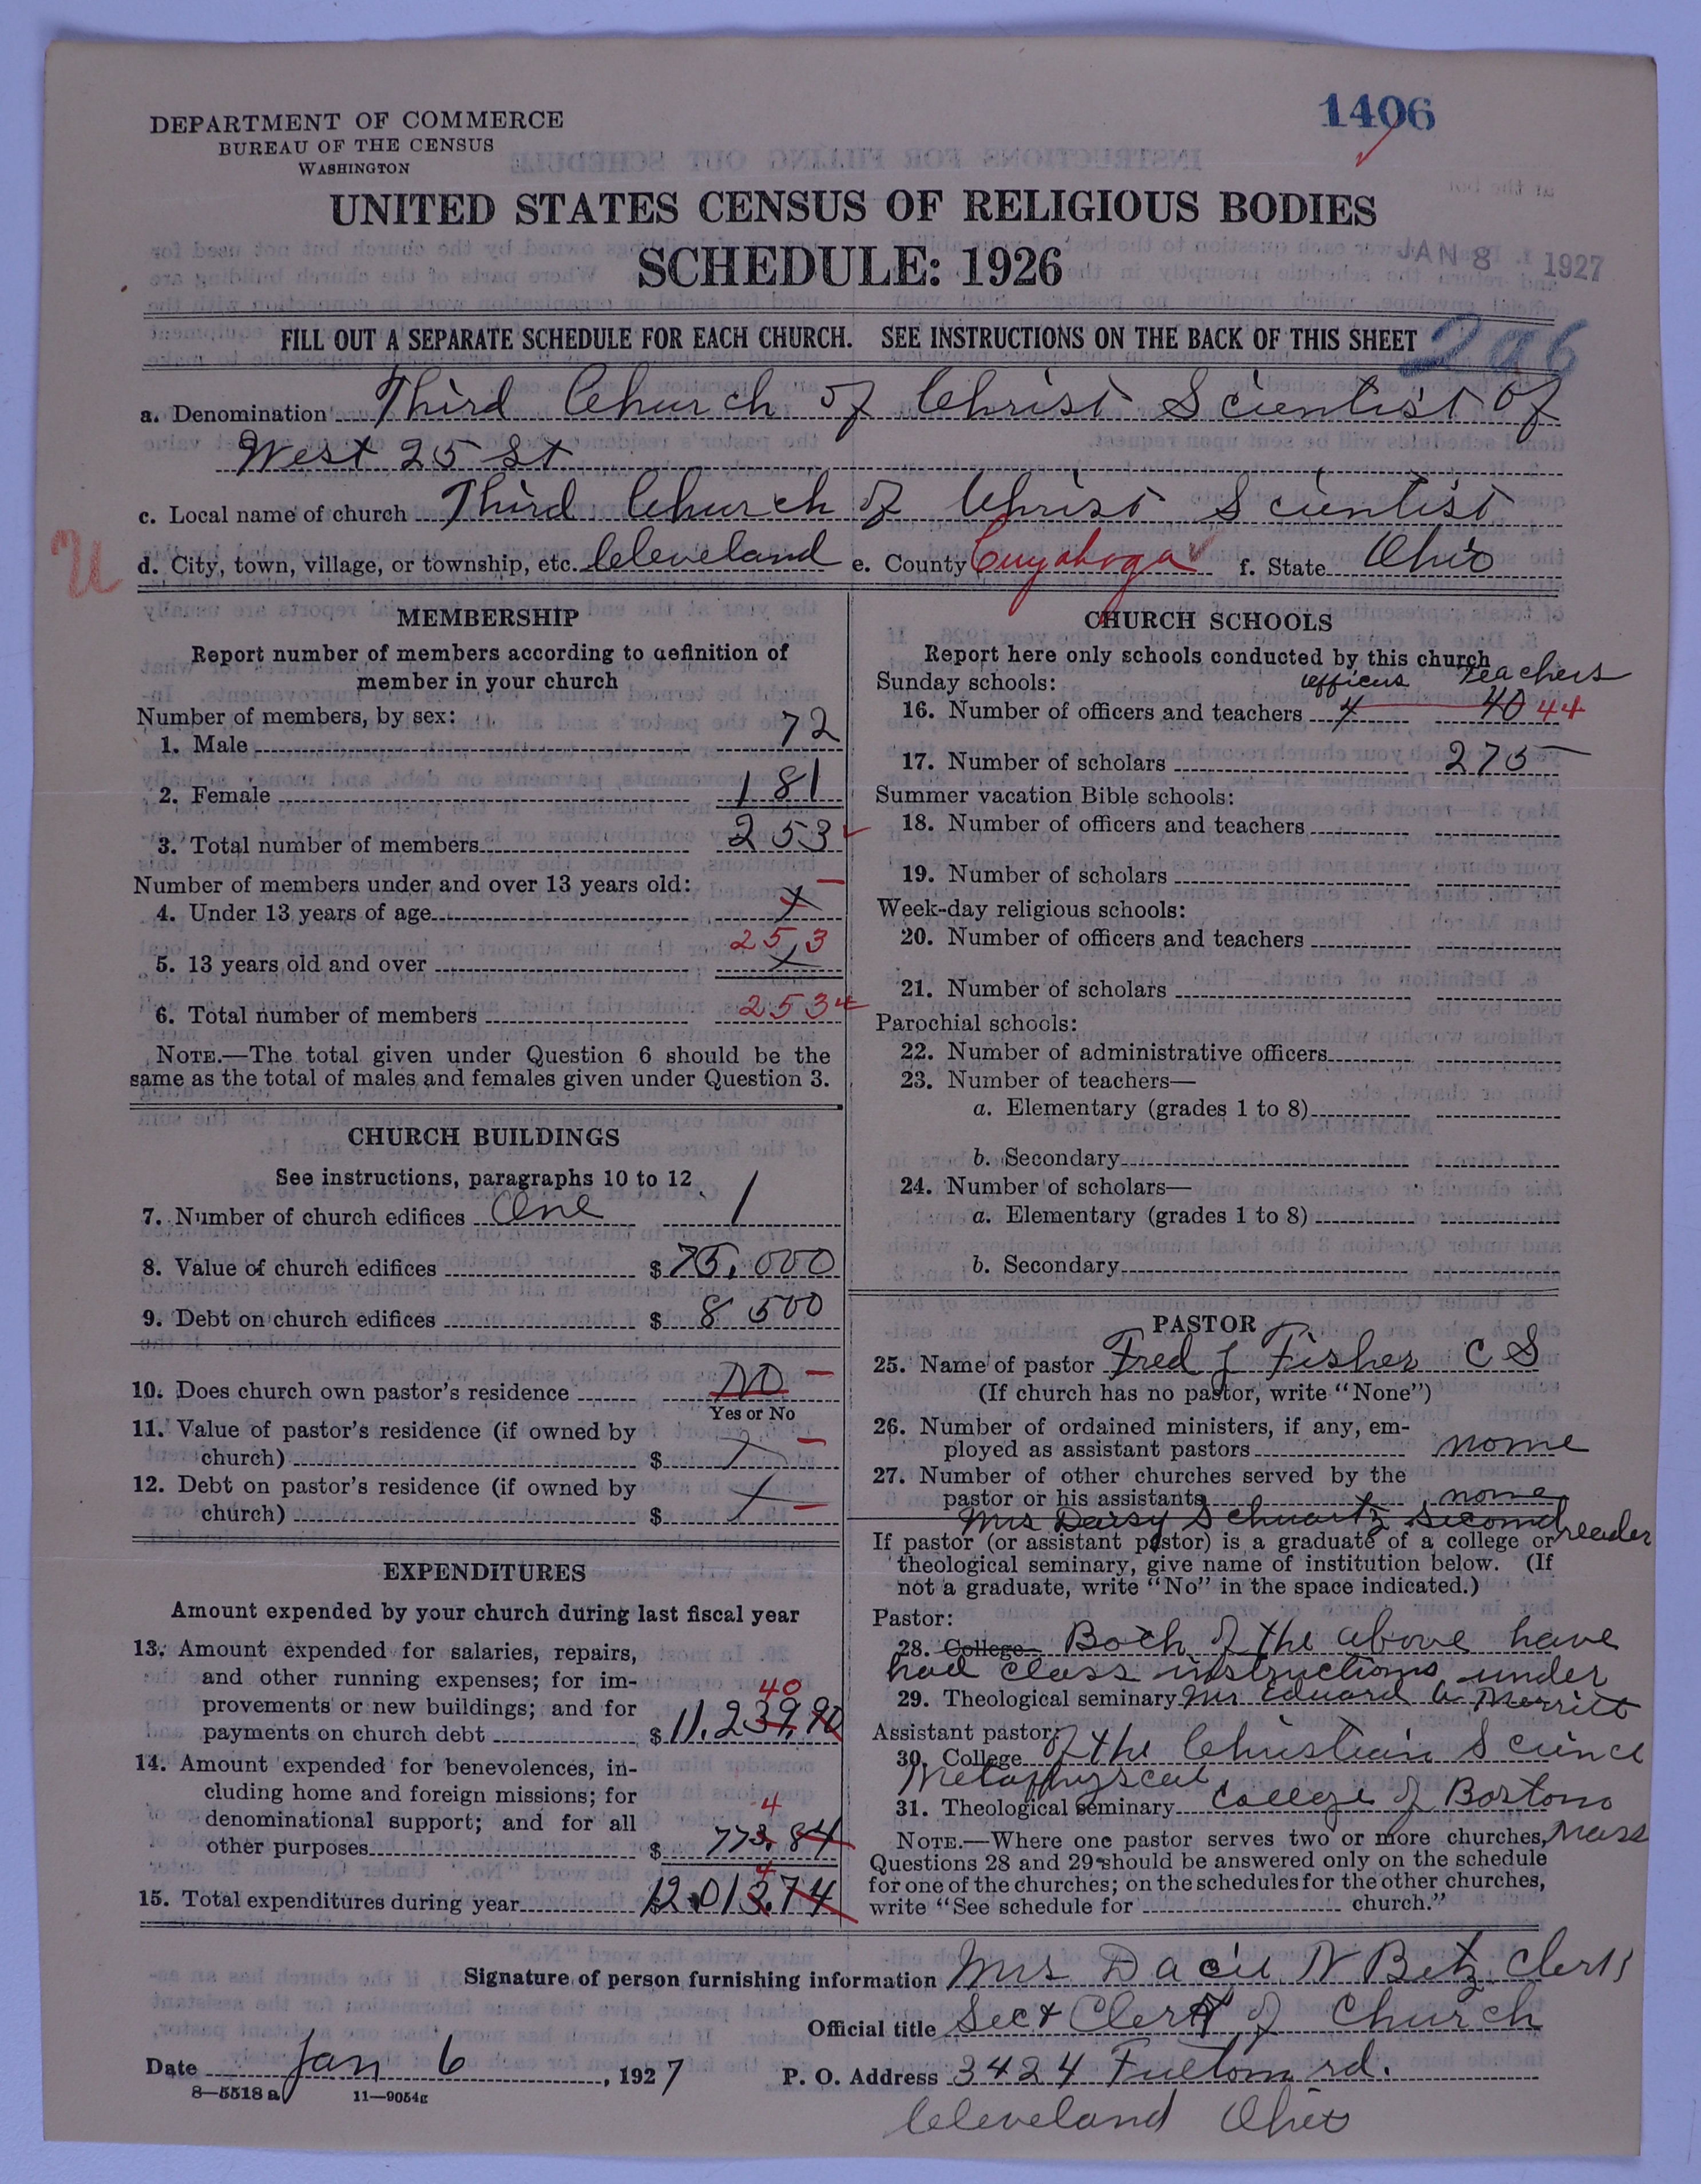 DEPARTMENT OF COMMERCE
BUREAU OF THE CENSUS
WASHINGTON
1406
UNITED STATES CENSUS OF RELIGIOUS BODIES
SCHEDULE: 1926
JAN 8 1927
FILL OUT A SEPARATE SCHEDULE FOR EACH CHURCH. SEE INSTRUCTIONS ON THE BACK OF THIS SHEET
296
a. Denomination Third Church of Christ Scientist of
West 25 St
c. Local name of church Third Church of Christ Scientist
U
d. City, town, village, or township, etc. Cleveland e. County Cuyahoga f. State Ohio
MEMBERSHIP
Report number of members according to definition of
member in your church
Number of members, by sex:
1. Male 72
2. Female 181
3. Total number of members 253
Number of members under and over 13 years old:
4. Under 13 years of age x –
5. 13 years old and over x 253
6. Total number of members 253
NOTE.—The total given under Question 6 should be the
same as the total of males and females given under Question 3.
CHURCH BUILDINGS
See instructions, paragraphs 10 to 12
7. Number of church edifices One 1
8. Value of church edifices $ 75,000
9. Debt on church edifices $ 8 500
10. Does church own pastor's residence No –
Yes or No
11. Value of pastor's residence (if owned by
church) $ x –
12. Debt on pastor's residence (if owned by
church) $ x –
EXPENDITURES
Amount expended by your church during last fiscal year
13. Amount expended for salaries, repairs,
and other running expenses; for im-
provements or new buildings; and for
40
payments on church debt $ 11,239.90
14. Amount expended for benevolences, in-
cluding home and foreign missions; for
denominational support; and for all
4
other purposes $ 773.84
4
15. Total expenditures during year $ 12.013.74
CHURCH SCHOOLS
Report here only schools conducted by this church
Sunday schools: officers teachers
16. Number of officers and teachers 4 40 44
17. Number of scholars 275
Summer vacation Bible schools:
18. Number of officers and teachers
19. Number of scholars
Week-day religious schools:
20. Number of officers and teachers
21. Number of scholars
Parochial schools:
22. Number of administrative officers
23. Number of teachers—
a. Elementary (grades 1 to 8)
b. Secondary
24. Number of scholars—
a. Elementary (grades 1 to 8)
b. Secondary
PASTOR
25. Name of pastor Fred J Fisher C S
(If church has no pastor, write "None")
26. Number of ordained ministers, if any, em-
ployed as assistant pastors none
27. Number of other churches served by the
pastor or his assistants none
Mrs Daisy Schwartz second reader
If pastor (or assistant pastor) is a graduate of a college or
theological seminary, give name of institution below. (If
not a graduate, write "No" in the space indicated.)
Pastor:
28. College Both of the above have
had class instructions under
29. Theological seminary Mr Eduard A Merritt
Assistant pastor:
30. College of the Christian Science
Metaphyscal
31. Theological seminary College of Boston
Mass
NOTE.—Where one pastor serves two or more churches,
Questions 28 and 29 should be answered only on the schedule
for one of the churches; on the schedules for the other churches,
write "See schedule for church."
Signature of person furnishing information Mrs N Betz Clerk
Official title Sec & Clerk of Church
Date Jan 6, 1927 P. O. Address 3424 Fulton rd.
8—5518 a 11—9054g
Cleveland Ohio